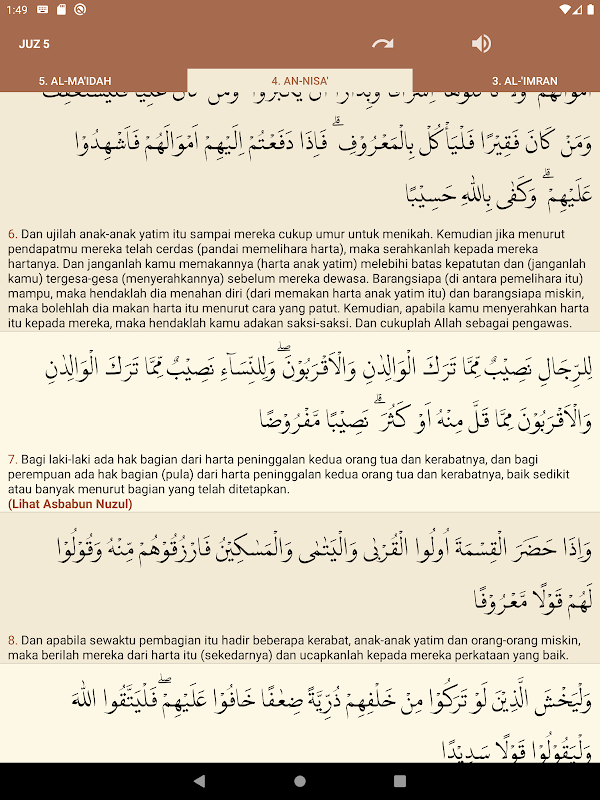 1:49
JUZ 5
5. AL-MA'IDAH
4. AN-NISA'
3. AL-'IMRAN
وَمَنْ كَانَ فَقِيْرًا فَلْيَأْكُلْ بِالْمَعْرُوْفِۗ فَاِذَا دَفَعْتُمْ اِلَيْهِمْ اَمْوَالَهُمْ فَاَشْهِدُوْا
عَلَيْهِمْۗ وَكَفٰى بِاللّٰهِ حَسِيْبًا
6. Dan ujilah anak-anak yatim itu sampai mereka cukup umur untuk menikah. Kemudian jika menurut
pendapatmu mereka telah cerdas (pandai memelihara harta), maka serahkanlah kepada mereka
hartanya. Dan janganlah kamu memakannya (harta anak yatim) melebihi batas kepatutan dan (janganlah
kamu) tergesa-gesa (menyerahkannya) sebelum mereka dewasa. Barangsiapa (di antara pemelihara itu)
mampu, maka hendaklah dia menahan diri (dari memakan harta anak yatim itu) dan barangsiapa miskin,
maka bolehlah dia makan harta itu menurut cara yang patut. Kemudian, apabila kamu menyerahkan harta
itu kepada mereka, maka hendaklah kamu adakan saksi-saksi. Dan cukuplah Allah sebagai pengawas.
لِلرِّجَالِ نَصِيْبٌ مِّمَّا تَرَكَ الْوَالِدٰنِ وَالْاَقْرَبُوْنَۖ وَلِلنِّسَاۤءِ نَصِيْبٌ مِّمَّا تَرَكَ الْوَالِدٰنِ
وَالْاَقْرَبُوْنَ مِمَّا قَلَّ مِنْهُ اَوْ كَثُرَۗ نَصِيْبًا مَّفْرُوْضًا
7. Bagi laki-laki ada hak bagian dari harta peninggalan kedua orang tua dan kerabatnya, dan bagi
perempuan ada hak bagian (pula) dari harta peninggalan kedua orang tua dan kerabatnya, baik sedikit
atau banyak menurut bagian yang telah ditetapkan.
(Lihat Asbabun Nuzul)
وَاِذَا حَضَرَ الْقِسْمَةَ اُولُوا الْقُرْبٰى وَالْيَتٰمٰى وَالْمَسٰكِيْنُ فَارْزُقُوْهُمْ مِّنْهُ وَقُوْلُوْا
لَهُمْ قَوْلًا مَّعْرُوْفًا
8. Dan apabila sewaktu pembagian itu hadir beberapa kerabat, anak-anak yatim dan orang-orang miskin,
maka berilah mereka dari harta itu (sekedarnya) dan ucapkanlah kepada mereka perkataan yang baik.
وَلْيَخْشَ الَّذِيْنَ لَوْ تَرَكُوْا مِنْ خَلْفِهِمْ ذُرِّيَّةً ضِعٰفًا خَافُوْا عَلَيْهِمْۖ فَلْيَتَّقُوا اللّٰهَ
وَلْيَقُوْلُوْا قَوْلًا سَدِيْدًا